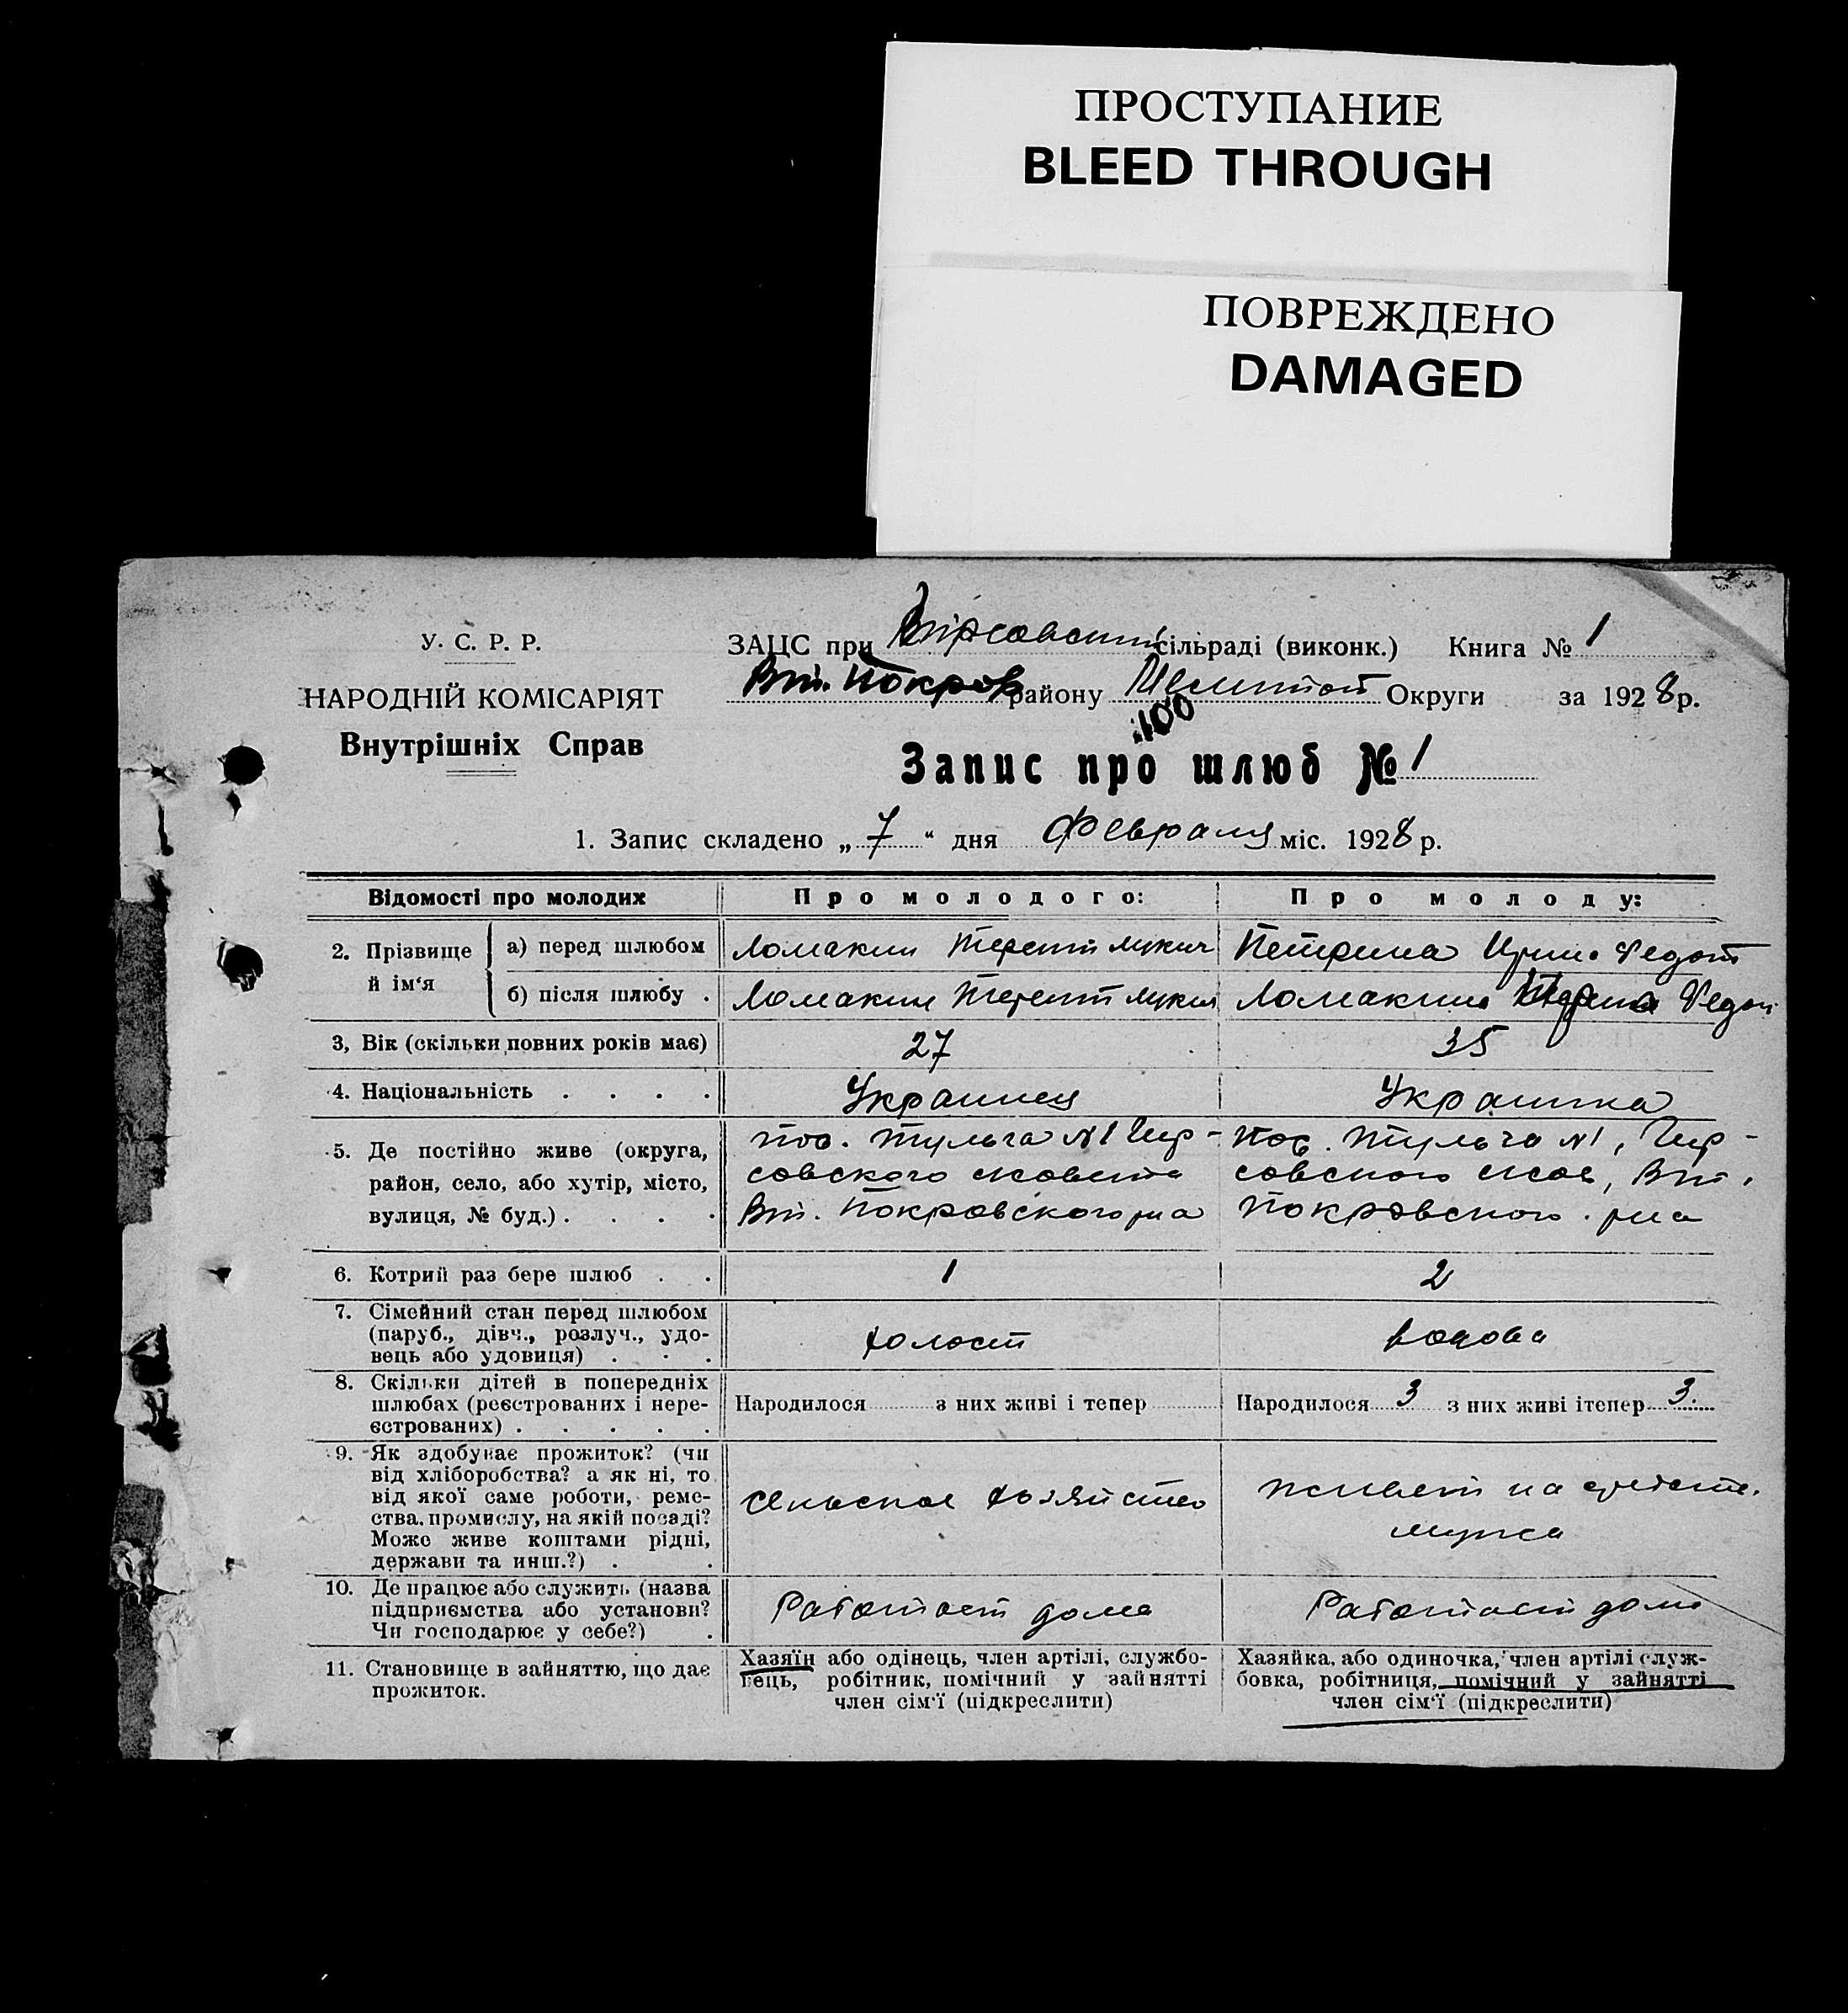 ПРОСТУПАНИЕ
BLEED THROUGH
ПОВРЕЖДЕНО
DAMAGED
У. С. Р. Р.
НАРОДНІЙ КОМІСАРІЯТ
Внутрішніх Справ
ЗАЦС при сільраді (виконк.) Книга № 1
Вт. Покров району Округи за 1928 р.
100
Запис про шлюб № 1
1. Запис складено „ 7 “ дня Февраля міс. 1928 р.
Відомості про молодих Про молодого: Про молоду:
2. Прізвище й ім‘я
а) перед шлюбом Ломакин Терент Лукич Петрина Ирина Федот
б) після шлюбу . Ломакин Терент Лукич Ломакина Федот
3, Вік (скільки повних років має) 27 35
4. Національність . . . . Украинец Украинка
5. Де постійно живе (округа,
район, село, або хутір, місто,
вулиця, № буд.) . . . .
пос. Тульча №1 Гир-
совского сковета
Вт. Покровского р-на
Пос. Тульча №1, Гир-
совского сков, Вт.
Покровского р-на
6. Котрий раз бере шлюб . . 1 2
7. Сімейний стан перед шлюбом
(паруб., дівч., розлуч., удо-
вець або удовиця) . . .
холост вдова
8. Скільки дітей в попередніх
шлюбах (реєстрованих і нере-
єстрованих) . . . . .
Народилося з них живі і тепер
Народилося 3 з них живі ітепер 3.
9. Як здобуває прожиток? (чи
від хліборобства? а як ні, то
від якої саме роботи, реме-
ства, промислу, на якій посаді?
Може живе коштами рідні,
держави та инш.?) . .
Сельское хозяйство
живет на средств.
мужа
10. Де працює або служить (назва
підприємства або установи?
Чи господарює у себе?) .
Работает дома Работает дома
11. Становище в зайняттю, що дає
прожиток.
Хазяїн або одінець, член артілі, службо-
вець, робітник, помічний у зайнятті
член сім‘ї (підкреслити)
Хазяйка, або одиночка, член артілі служ-
бовка, робітниця, помічний у зайнятті
член сім‘ї (підкреслити)